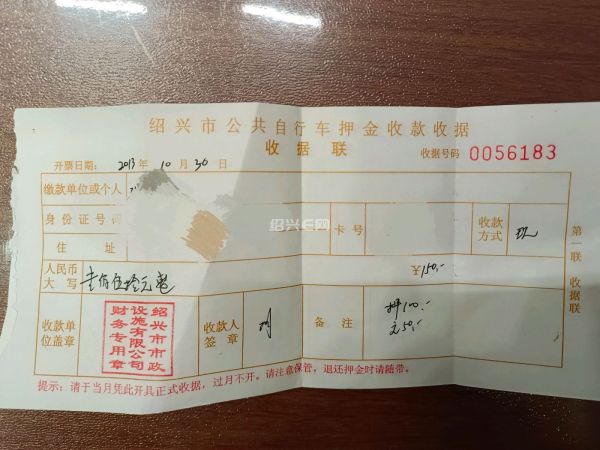 绍兴市公共自行车押金收款收据
收据联
收据号码 0056183
开票日期: 2013 年 10 月 30 日
缴款单位或个人
身份证号
卡号
收款方式 现
住址
人民币大写 壹佰伍拾元
¥150.-
收款单位盖章
绍兴市市政设施有限公司财务专用章
收款人签章
备注
押100.-
元50.-
第一联 收据联
提示: 请于当月凭此开具正式收据, 过月不开。请注意保管, 退还押金时请随带。
绍兴E网